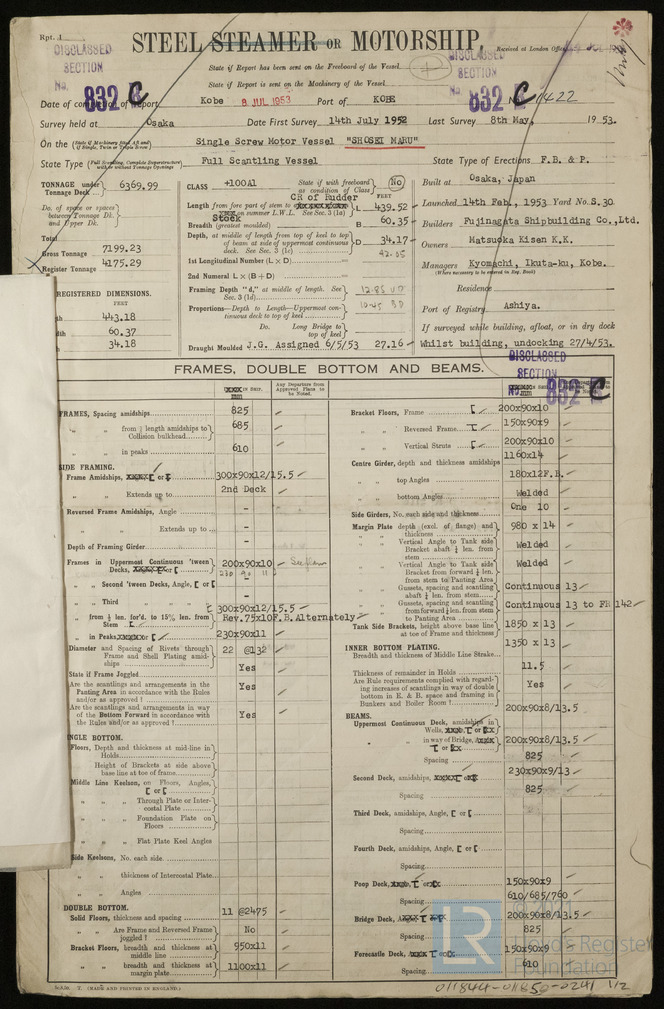 Rpt. 1
STEEL STEAMER OR MOTORSHIP.
Received at London Office
DISCLASSED SECTION No. 832 C
State if Report has been sent on the Freeboard of the Vessel
State if Report is sent on the Machinery of the Vessel
DISCLASSED SECTION No. 832 C
Date of completion of Report Kobe 8 JUL 1953 Port of KOBE No.
Survey held at Osaka Date First Survey 14th July 1952 Last Survey 8th May, 1953.
On the (State if Machinery fitted Aft and if Single, Twin or Triple Screw) Single Screw Motor Vessel "SHOSEI MARU"
State Type (Full Scantling, Complete Superstructure with or without Tonnage Openings) Full Scantling Vessel State Type of Erections F.B. & P.
TONNAGE under Tonnage Deck 6369.99
Do. of space or spaces between Tonnage Dk. and Upper Dk.
Total
Gross Tonnage 7199.23
Register Tonnage 4175.29
REGISTERED DIMENSIONS.
FEET
443.18
60.37
34.18
CLASS +100A1 State if with freeboard as condition of Class No
CR of Rudder Stock FEET
Length from fore part of stem to on summer L.W.L. See Sec. 3 (1a) L 439.52
Breadth (greatest moulded) B 60.35
Depth, at middle of length from top of keel to top of beam at side of uppermost continuous deck. See Sec. 3 (1c) D 34.17
1st Longitudinal Number (L x D)
2nd Numeral L x (B + D)
Framing Depth "d," at middle of length. See Sec. 3 (1d)
Proportions—Depth to Length—Uppermost continuous deck to top of keel
Do. Long Bridge to top of keel
Draught Moulded J.G. Assigned 6/5/53 27.16
Built at Osaka, Japan
Launched 14th Feb., 1953 Yard No. S.30
Builders Fujinagata Shipbuilding Co., Ltd.
Owners Matsuoka Kisen K.K.
Managers Kyomachi, Ikuta-ku, Kobe.
(Where necessary to be entered in Reg. Book)
Residence
Port of Registry Ashiya.
If surveyed while building, afloat, or in dry dock
Whilst building, undocking 27/4/53.
DISCLASSED SECTION No. 832 C
FRAMES, DOUBLE BOTTOM AND BEAMS.
IN SHIP. mm
Any Departure from Approved Plans to be Noted.
FRAMES, Spacing amidships 825
" " from ½ length amidships to Collision bulkhead 685
" " in peaks 610
SIDE FRAMING.
Frame Amidships, or [ 300x90x12/15.5
" " Extends up to 2nd Deck
Reversed Frame Amidships, Angle -
" " Extends up to -
Depth of Framing Girder -
Frames in Uppermost Continuous 'tween Decks, or [ 200x90x10
" Second 'tween Decks, Angle, [ or [ -
" Third " " " -
" from ½ len. for'd. to 15% len. from Stem [ 300x90x12/15.5 Rev.75x10F.B.Alternately
" in Peaks, or [ 230x90x11
Diameter and Spacing of Rivets through Frame and Shell Plating amidships 22 @132
State if Frame Joggled Yes
Are the scantlings and arrangements in the Panting Area in accordance with the Rules and/or as approved? Yes
Are the scantlings and arrangements in way of the Bottom Forward in accordance with the Rules and/or as approved? Yes
SINGLE BOTTOM.
Floors, Depth and thickness at mid-line in Holds
Height of Brackets at side above base line at toe of frame
Middle Line Keelson, on Floors, Angles, [ or [
" " Through Plate or Intercostal Plate
" " Foundation Plate on Floors
" " Flat Plate Keel Angles
Side Keelsons, No. each side
" " thickness of Intercostal Plate
" " Angles
DOUBLE BOTTOM.
Solid Floors, thickness and spacing 11 @2475
" " Are Frame and Reversed Frame joggled? No
Bracket Floors, breadth and thickness at middle line 950x11
" " breadth and thickness at margin plate 1100x11
Bracket Floors, Frame [ 200x90x10
" " Reversed Frame 150x90x9
" " Vertical Struts [ 200x90x10
Centre Girder, depth and thickness amidships 1160x14
" " top Angles 180x12F.B.
" " bottom Angles Welded
Side Girders, No. each side and thickness One 10
Margin Plate depth (excl. of flange) and thickness 980 x 14
" " Vertical Angle to Tank side Bracket abaft ¼ len. from stem Welded
" " Vertical Angle to Tank side Bracket from forward ¼ len. from stem to Panting Area Welded
" " Gussets, spacing and scantling abaft ¼ len. from stem Continuous 13
" " Gussets, spacing and scantling from forward ¼ len. from stem to Panting Area Continuous 13 to FR 142
Tank Side Brackets, height above base line at toe of Frame and thickness 1850 x 13
INNER BOTTOM PLATING.
Breadth and thickness of Middle Line Strake 1350 x 13
Thickness of remainder in Holds 11.5
Are Rule requirements complied with regarding increases of scantlings in way of double bottom in E. & B. space and framing in Bunkers and Boiler Room? Yes
BEAMS.
Uppermost Continuous Deck, amidships in Wells, 200x90x8/13.5
" " in way of Bridge, 200x90x8/13.5
Spacing 825
Second Deck, amidships, 230x90x9/13
Spacing 825
Third Deck, amidships, Angle, [ or [
Spacing
Fourth Deck, amidships, Angle, [ or [
Spacing
Poop Deck, 150x90x9
Spacing 610/685/760
Bridge Deck, 200x90x8/13.5
Spacing 825
Forecastle Deck, 150x90x9
Spacing 610
(MADE AND PRINTED IN ENGLAND.)
LR
© 2021 Lloyd's Register Foundation
011844-011850-0241 1/2